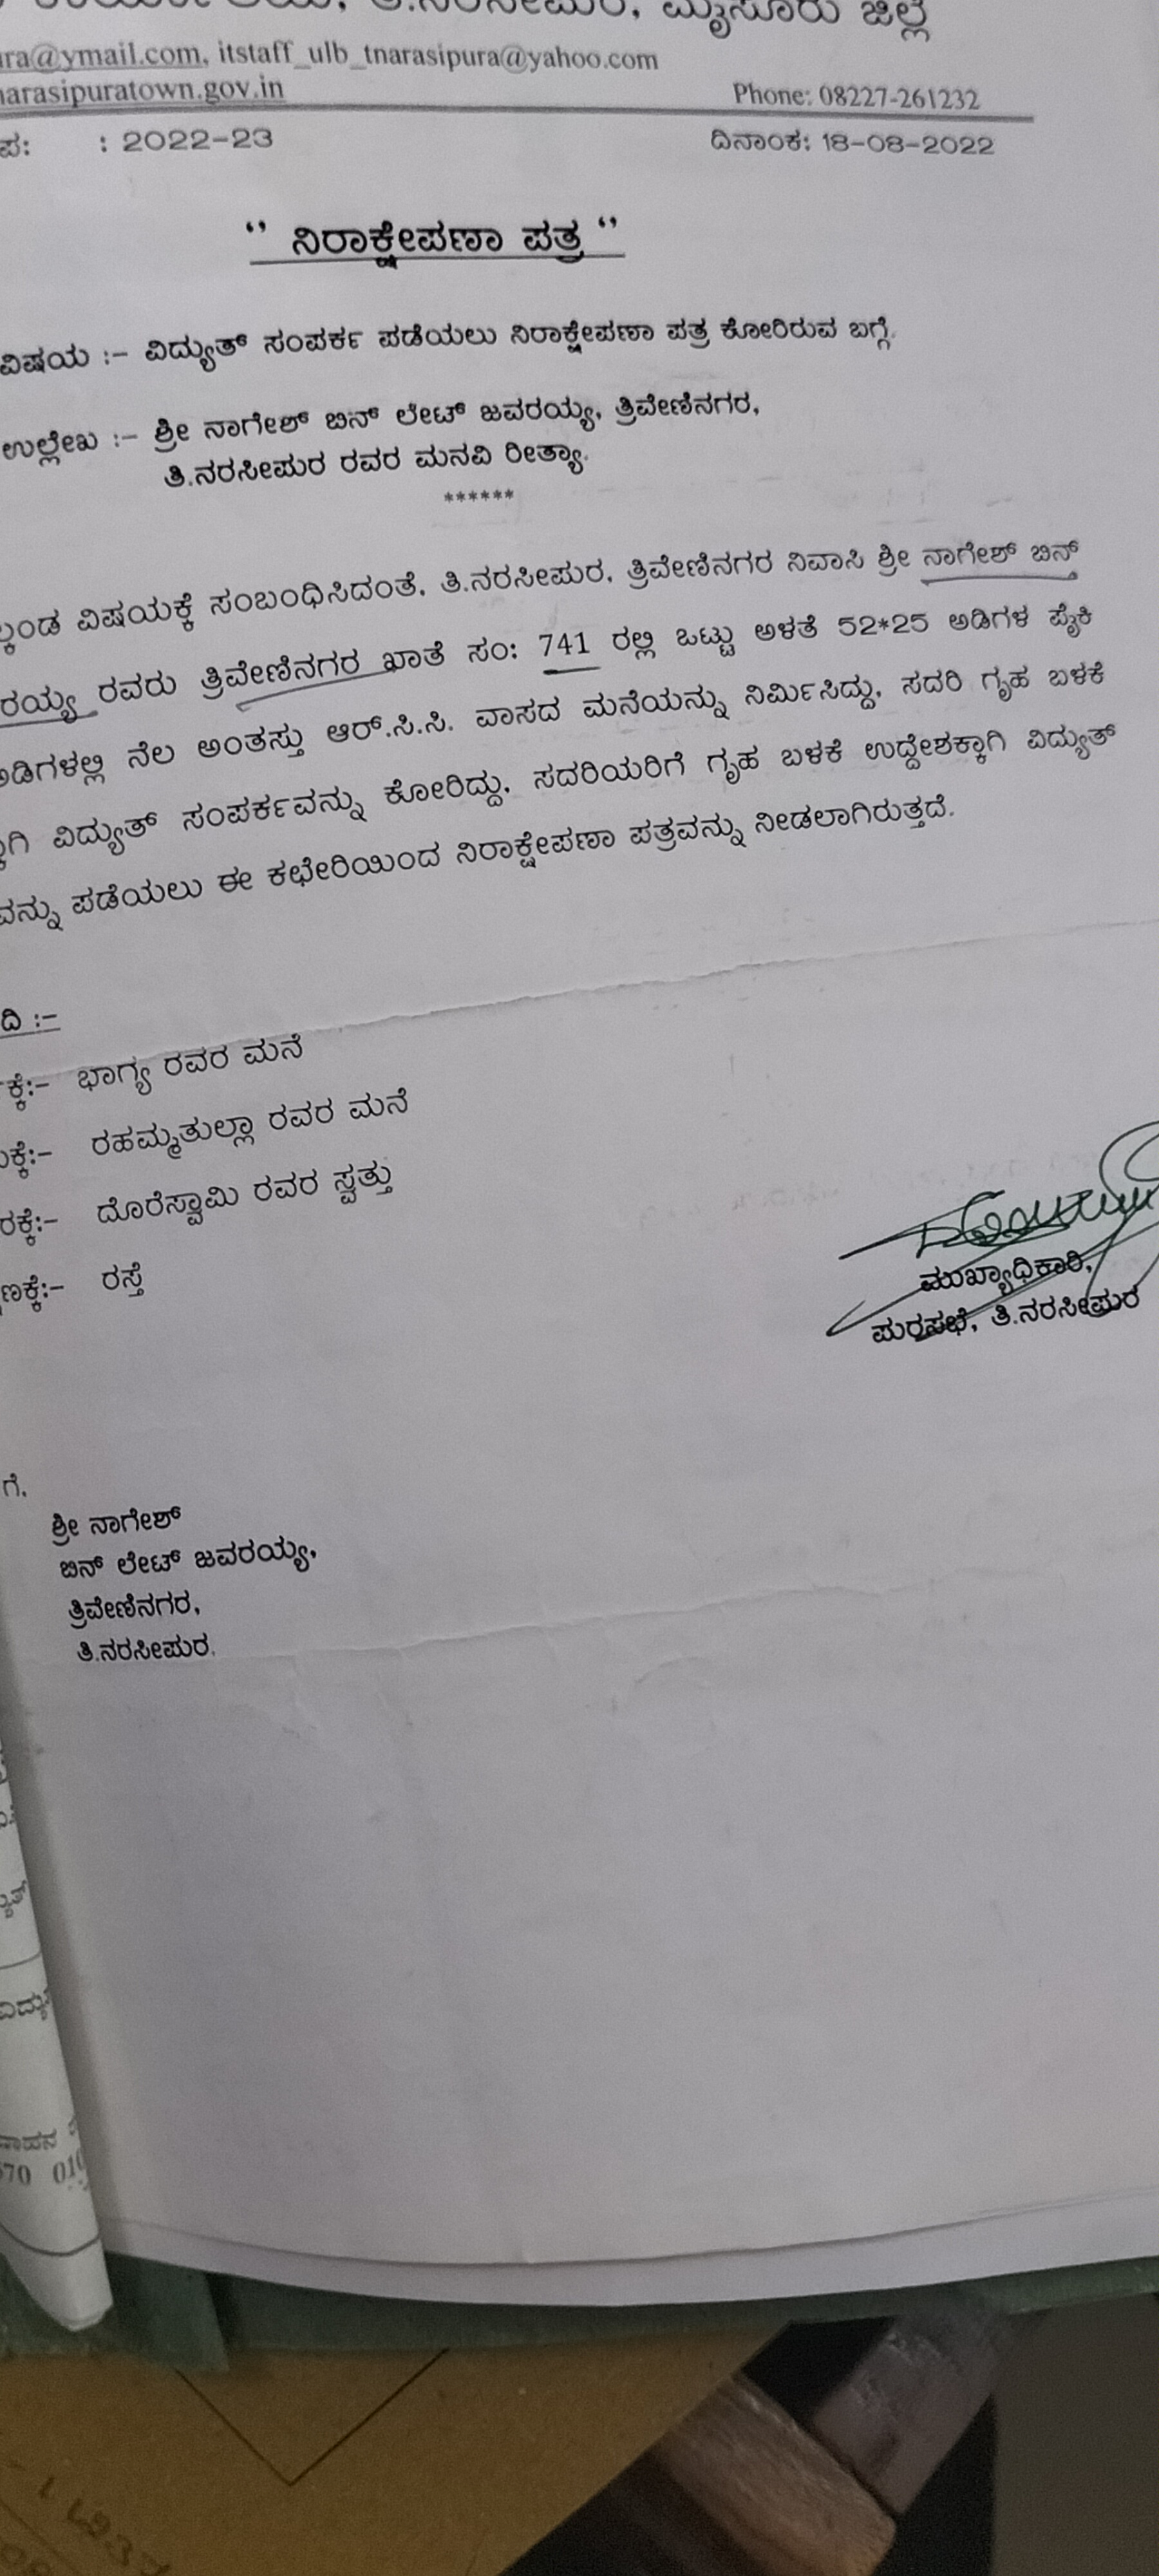 ತಿ.ನರಸೀಪುರ, ಮೈಸೂರು ಜಿಲ್ಲೆ
ra@ymail.com, itstaff_ulb_tnarasipura@yahoo.com
narasipuratown.gov.in Phone: 08227-261232
ಪ: : 2022-23 ದಿನಾಂಕ: 18-08-2022
'' ನಿರಾಕ್ಷೇಪಣಾ ಪತ್ರ ''
ವಿಷಯ :- ವಿದ್ಯುತ್ ಸಂಪರ್ಕ ಪಡೆಯಲು ನಿರಾಕ್ಷೇಪಣಾ ಪತ್ರ ಕೋರಿರುವ ಬಗ್ಗೆ.
ಉಲ್ಲೇಖ :- ಶ್ರೀ ನಾಗೇಶ್ ಬಿನ್ ಲೇಟ್ ಜವರಯ್ಯ, ತ್ರಿವೇಣಿನಗರ,
ತಿ.ನರಸೀಪುರ ರವರ ಮನವಿ ರೀತ್ಯಾ.
******
ಲ್ಕಂಡ ವಿಷಯಕ್ಕೆ ಸಂಬಂಧಿಸಿದಂತೆ, ತಿ.ನರಸೀಪುರ, ತ್ರಿವೇಣಿನಗರ ನಿವಾಸಿ ಶ್ರೀ ನಾಗೇಶ್ ಬಿನ್
ರಯ್ಯ ರವರು ತ್ರಿವೇಣಿನಗರ ಖಾತೆ ಸಂ: 741 ರಲ್ಲಿ ಒಟ್ಟು ಅಳತೆ 52*25 ಅಡಿಗಳ ಪೈಕಿ
ಅಡಿಗಳಲ್ಲಿ ನೆಲ ಅಂತಸ್ತು ಆರ್.ಸಿ.ಸಿ. ವಾಸದ ಮನೆಯನ್ನು ನಿರ್ಮಿಸಿದ್ದು, ಸದರಿ ಗೃಹ ಬಳಕೆ
ಕ್ಕಾಗಿ ವಿದ್ಯುತ್ ಸಂಪರ್ಕವನ್ನು ಕೋರಿದ್ದು, ಸದರಿಯರಿಗೆ ಗೃಹ ಬಳಕೆ ಉದ್ದೇಶಕ್ಕಾಗಿ ವಿದ್ಯುತ್
ವನ್ನು ಪಡೆಯಲು ಈ ಕಛೇರಿಯಿಂದ ನಿರಾಕ್ಷೇಪಣಾ ಪತ್ರವನ್ನು ನೀಡಲಾಗಿರುತ್ತದೆ.
ದಿ :-
ಕ್ಕೆ:- ಭಾಗ್ಯ ರವರ ಮನೆ
ಕ್ಕೆ:- ರಹಮ್ಮತುಲ್ಲಾ ರವರ ಮನೆ
ರಕ್ಕೆ:- ದೊರೆಸ್ವಾಮಿ ರವರ ಸ್ವತ್ತು
ಣಕ್ಕೆ:- ರಸ್ತೆ
ಮುಖ್ಯಾಧಿಕಾರಿ,
ಪುರಸಭೆ, ತಿ.ನರಸೀಪುರ
ಗೆ,
ಶ್ರೀ ನಾಗೇಶ್
ಬಿನ್ ಲೇಟ್ ಜವರಯ್ಯ,
ತ್ರಿವೇಣಿನಗರ,
ತಿ.ನರಸೀಪುರ.